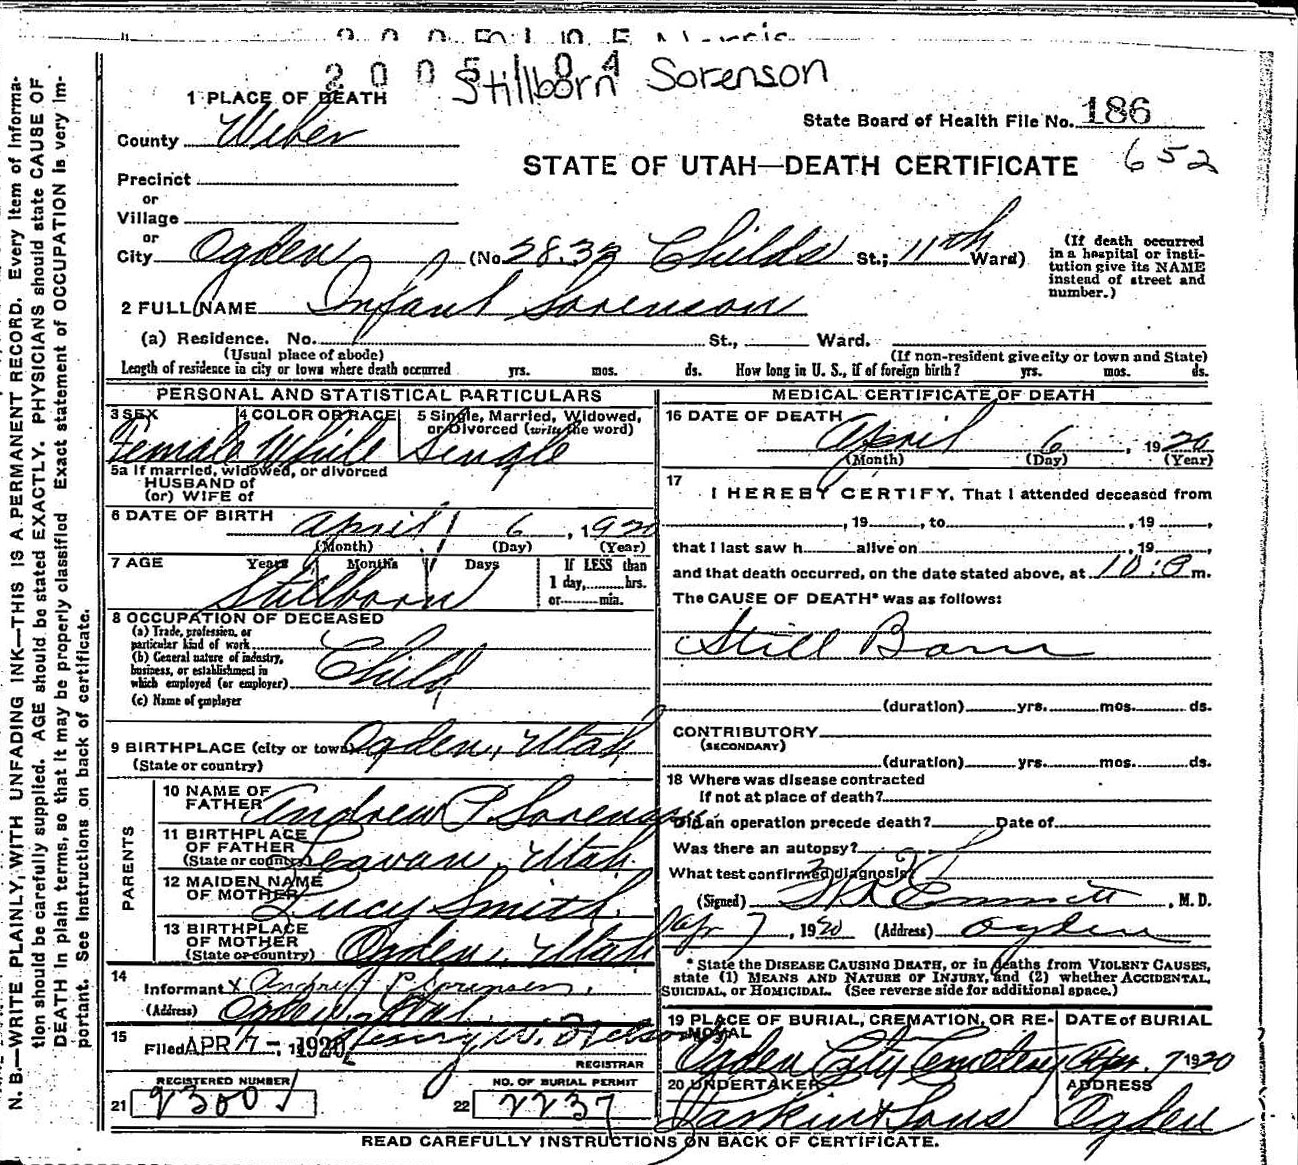 2005104
Stillborn Sorenson
1 PLACE OF DEATH
County Weber
State Board of Health File No. 186
652
STATE OF UTAH—DEATH CERTIFICATE
Precinct
or
Village
or
City Ogden (No 2833 Childs St.; 11th Ward)
(If death occurred in a hospital or insti-
tution give its NAME instead of street and number.)
2 FULL NAME Infant Sorenson
(a) Residence. No. St., Ward.
(Usual place of abode) (If non-resident give city or town and State)
Length of residence in city or town where death occurred yrs. mos. ds. How long in U. S., if of foreign birth? yrs. mos. ds.
PERSONAL AND STATISTICAL PARTICULARS
3 SEX 4 COLOR OR RACE 5 Single, Married, Widowed,
or Divorced (write the word)
Female White Single
5a If married, widowed, or divorced
HUSBAND of
(or) WIFE of
6 DATE OF BIRTH April 6, 1920
(Month) (Day) (Year)
7 AGE Years Months Days If LESS than
1 day, hrs.
or min.
Stillborn
8 OCCUPATION OF DECEASED
(a) Trade, profession, or
particular kind of work
(b) General nature of industry,
business, or establishment in
which employed (or employer)
Child
(c) Name of employer
9 BIRTHPLACE (city or town) Ogden, Utah
(State or country)
PARENTS
10 NAME OF
FATHER Andrew P. Sorenson
11 BIRTHPLACE
OF FATHER
(State or country) Levan, Utah.
12 MAIDEN NAME
OF MOTHER Lucy Smith.
13 BIRTHPLACE
OF MOTHER
(State or country) Ogden, Utah
14
Informant x Andrew P Sorensen.
(Address) Ogden Utah.
15 Filed APR 7-, 1920 Henry W.
REGISTRAR
REGISTERED NUMBER
21 2300
NO. OF BURIAL PERMIT
22 2237
MEDICAL CERTIFICATE OF DEATH
16 DATE OF DEATH
April 6, 1920
(Month) (Day) (Year)
17
I HEREBY CERTIFY, That I attended deceased from
, 19 , to , 19 ,
that I last saw h alive on , 19 ,
and that death occurred, on the date stated above, at 10:0 m.
The CAUSE OF DEATH* was as follows:
Still Born
(duration) yrs. mos. ds.
CONTRIBUTORY
(SECONDARY)
(duration) yrs. mos. ds.
18 Where was disease contracted
If not at place of death?
Did an operation precede death? Date of
Was there an autopsy?
What test confirmed diagnosis?
(Signed) Emmett, M. D.
Apr 7, 1920 (Address) Ogden
* State the DISEASE CAUSING DEATH, or in deaths from VIOLENT CAUSES,
state (1) MEANS AND NATURE OF INJURY, and (2) whether ACCIDENTAL,
SUICIDAL, or HOMICIDAL. (See reverse side for additional space.)
19 PLACE OF BURIAL, CREMATION, OR RE-
MOVAL
DATE of BURIAL
Ogden City Cemetery Apr. 7 1920
20 UNDERTAKER ADDRESS
Larkin & Sons Ogden
READ CAREFULLY INSTRUCTIONS ON BACK OF CERTIFICATE.
N. B.—WRITE PLAINLY, WITH UNFADING INK—THIS IS A PERMANENT RECORD. Every item of informa-
tion should be carefully supplied. AGE should be stated EXACTLY. PHYSICIANS should state CAUSE OF
DEATH in plain terms, so that it may be properly classified. Exact statement of OCCUPATION is very im-
portant. See instructions on back of certificate.